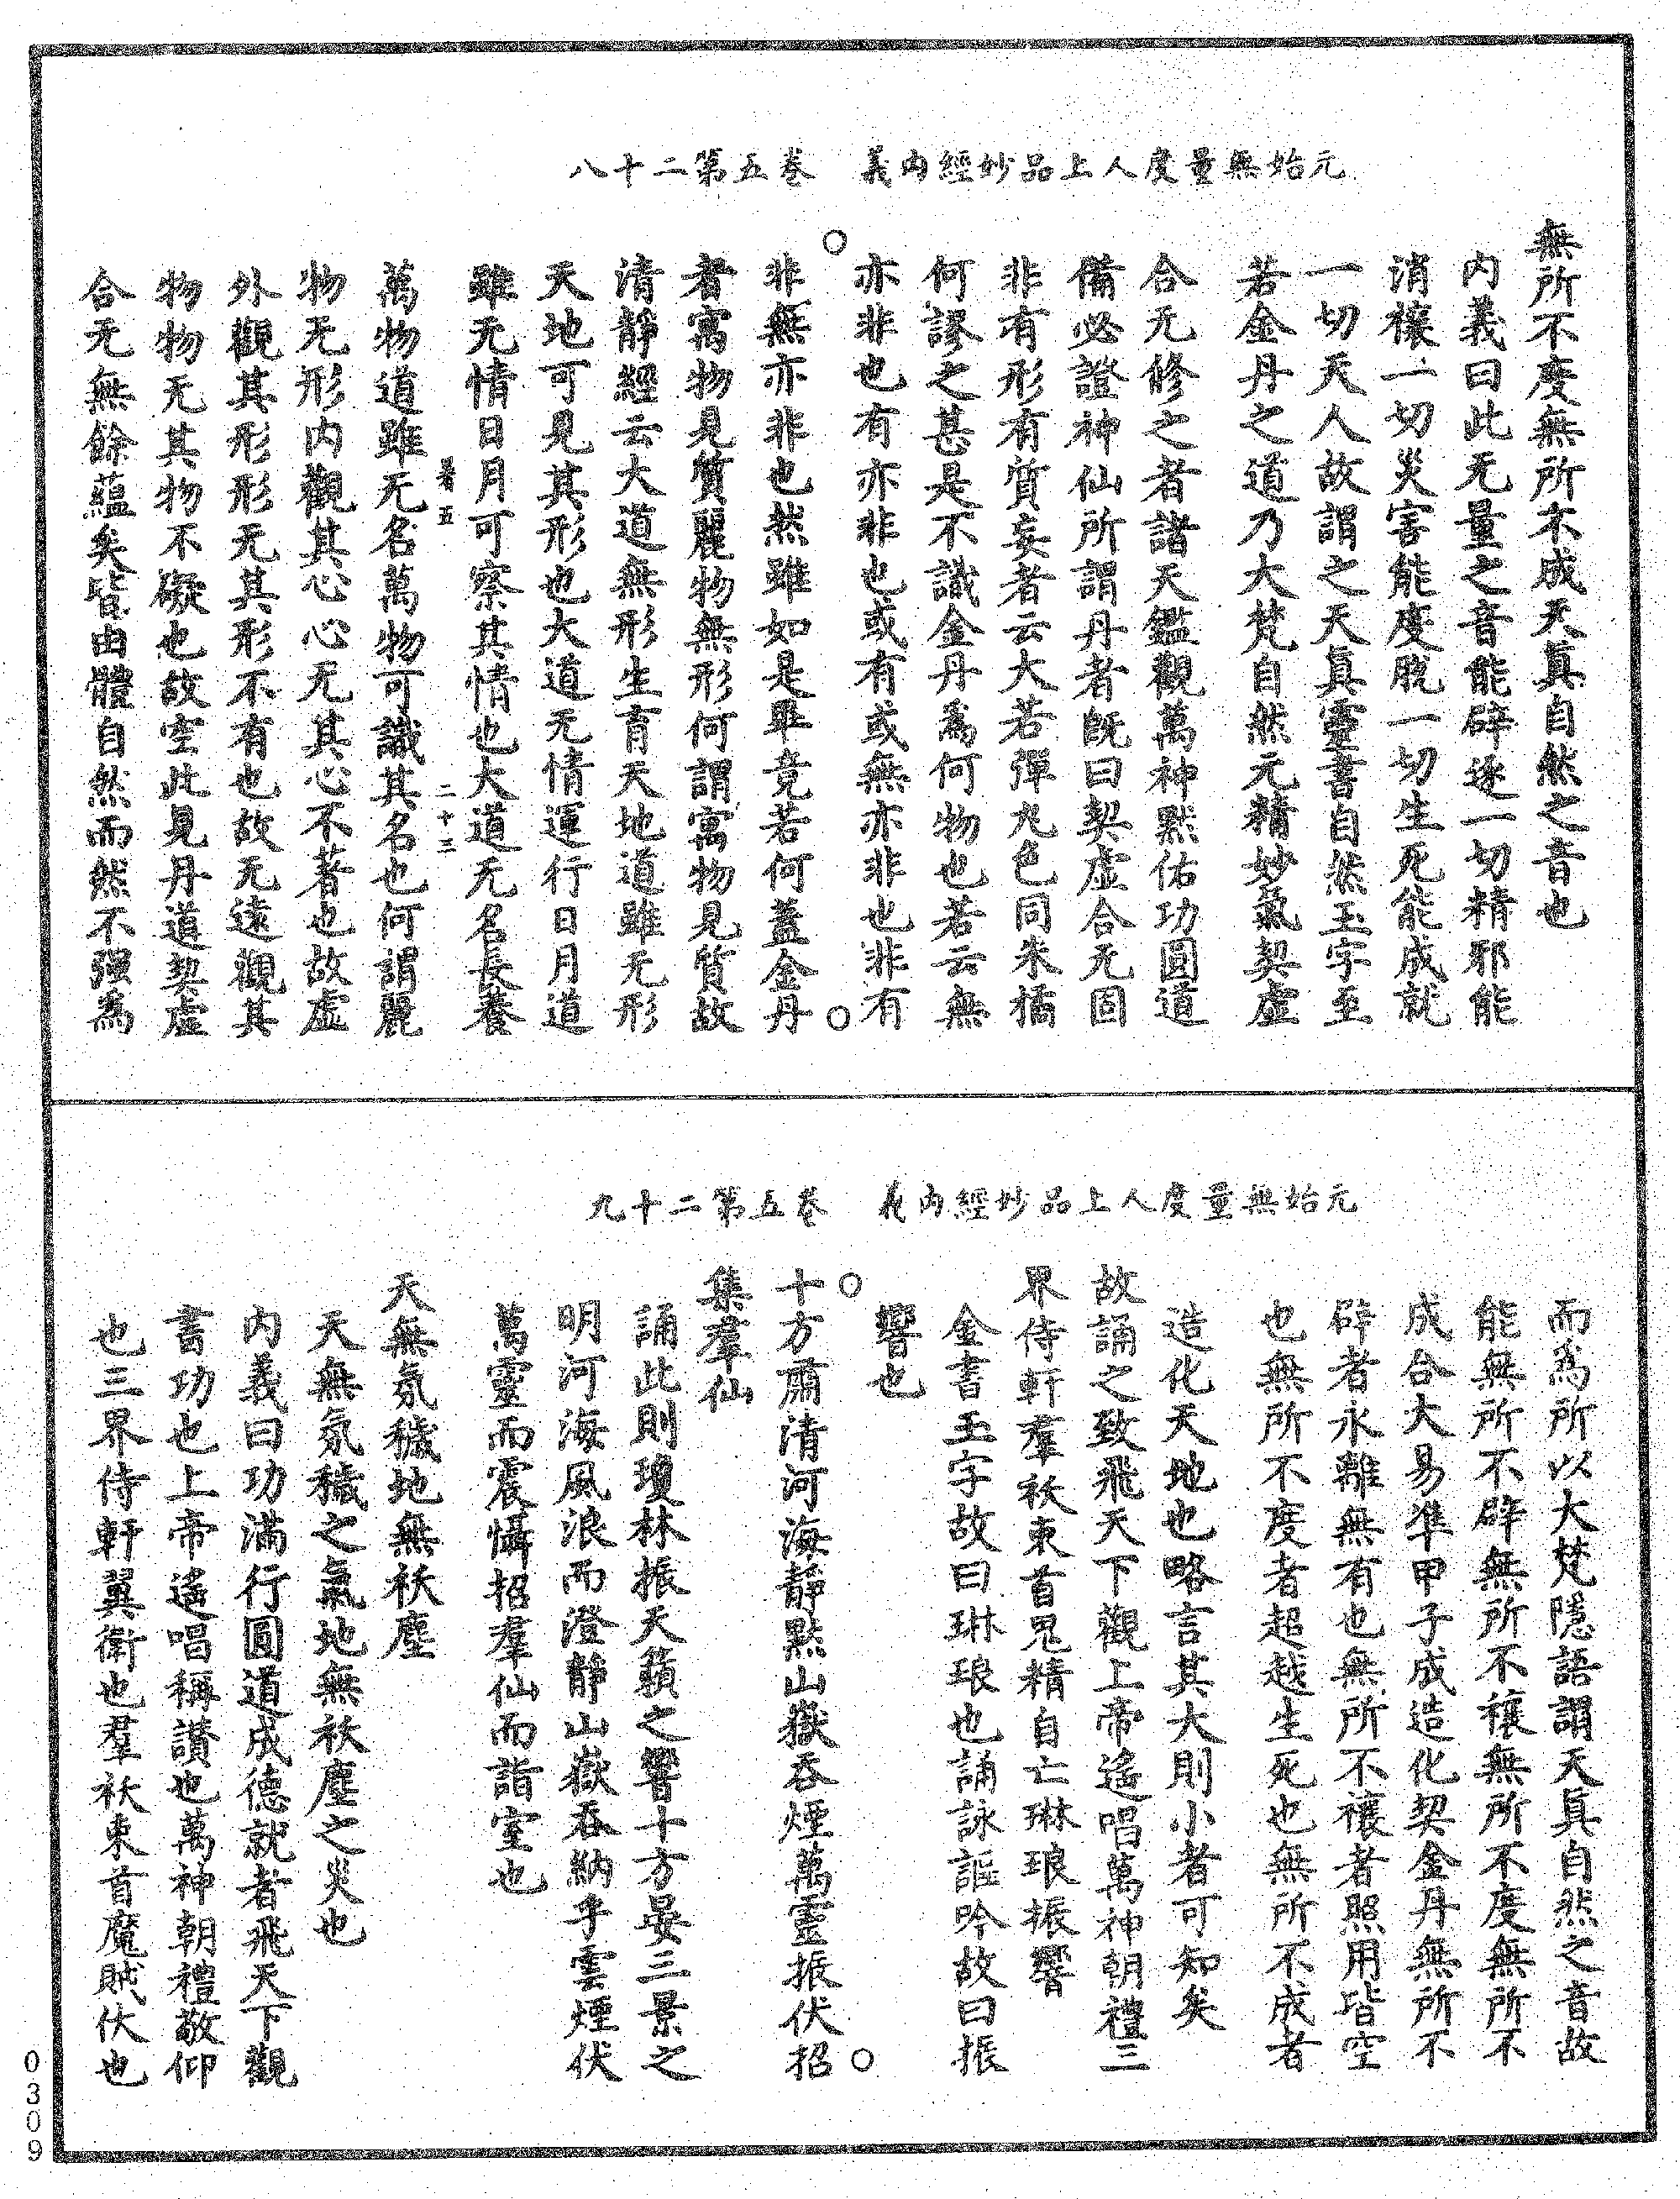 元始無量度人上品妙經內義　卷五第二十八
無所不度無所不成天真自然之音也
內義曰此无量之音能辟逐一切精邪能
消禳一切災害能度脫一切生死能成就
一切天人故謂之天真靈書自然玉字至
若金丹之道乃大梵自然元精妙氣契虛
合无修之者諸天鑑觀萬神默佑功圓道
備必證神仙所謂丹者旣曰契虛合无固
非有形有質妄者云大若彈丸色同朱橘
何謬之甚是不識金丹爲何物也若云無
亦非也有亦非也或有或無亦非也非有
非無亦非也然雖如是畢竟若何蓋金丹
者寓物見質麗物無形何謂寓物見質故
清靜經云大道無形生育天地道雖无形
天地可見其形也大道无情運行日月道
雖无情日月可察其情也大道无名長養
萬物道雖无名萬物可識其名也何謂麗
物无形內觀其心心无其心不著也故虛
外觀其形形无其形不有也故无遠觀其
物物无其物不礙也故空此見丹道契虛
合无無餘蘊矣皆由體自然而然不强爲
元始無量度人上品妙經內義　卷五第二十九
而爲所以大梵隱語謂天真自然之音故
能無所不辟無所不禳無所不度無所不
成合大易準甲子成造化契金丹無所不
辟者永離無有也無所不禳者照用皆空
也無所不度者超越生死也無所不成者
造化天地也略言其大則小者可知矣
故誦之致飛天下觀上帝遙唱萬神朝禮三
界侍軒羣袄束首鬼精自亡琳琅振響
金書玉字故曰琳琅也誦詠謳吟故曰振
響也
十方肅清河海靜默山嶽吞煙萬靈振伏招
集羣仙
誦此則瓊林振天籟之響十方晏三景之
明河海風浪而澄靜山嶽吞納乎雲煙伏
萬靈而震懾招羣仙而詣室也
天無氛穢地無袄塵
天無氛穢之氣地無袄塵之災也
內義曰功滿行圓道成德就者飛天下觀
書功也上帝遙唱稱讚也萬神朝禮敬仰
也三界侍軒翼衛也羣袄束首魔賊伏也
0309